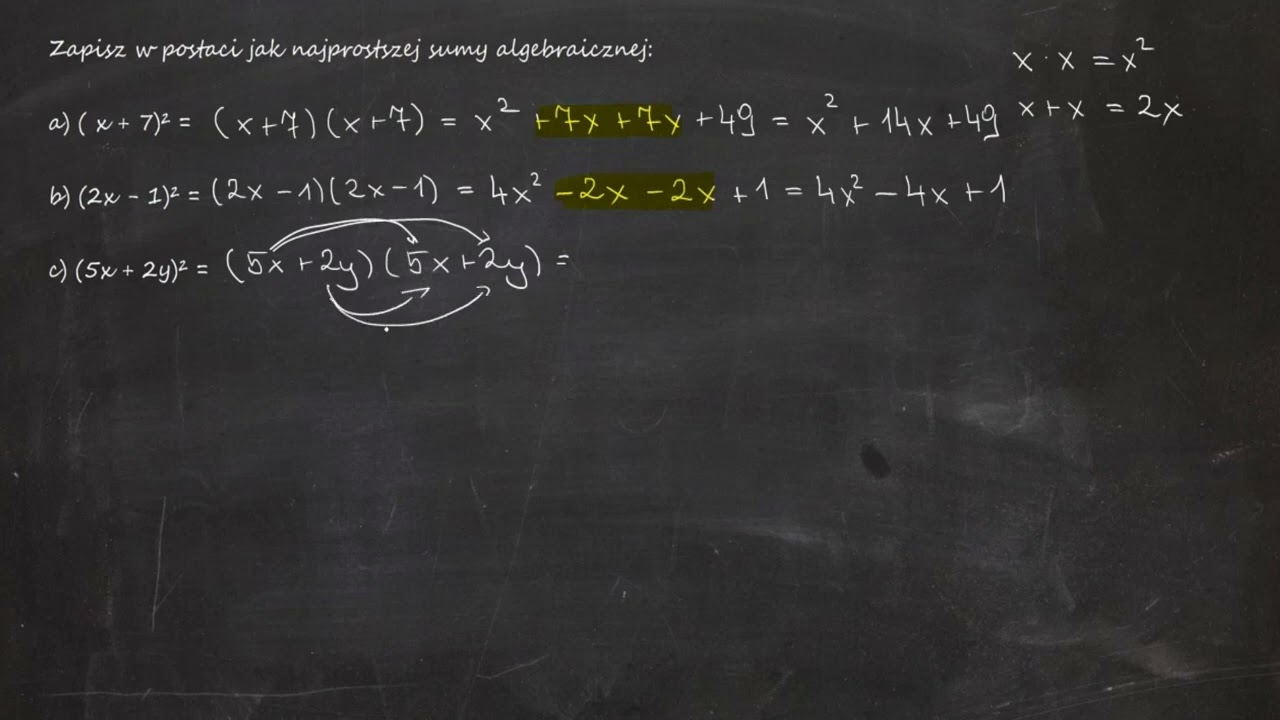 Zapisz w postaci jak najprostszej sumy algebraicznej:
x · x = x²
a) (x + 7)² = (x+7)(x+7) = x² +7x +7x +49 = x² + 14x +49
x + x = 2x
b) (2x - 1)² = (2x -1)(2x-1) = 4x² -2x -2x +1 = 4x² - 4x +1
c) (5x + 2y)² = (5x +2y)(5x+2y) =